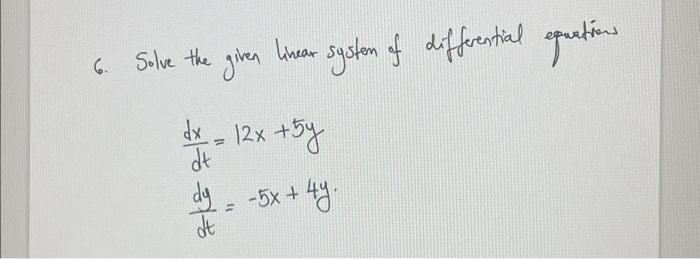 6. Solve the given linear system of differential equations
dx/dt = 12x + 5y
dy/dt = -5x + 4y.